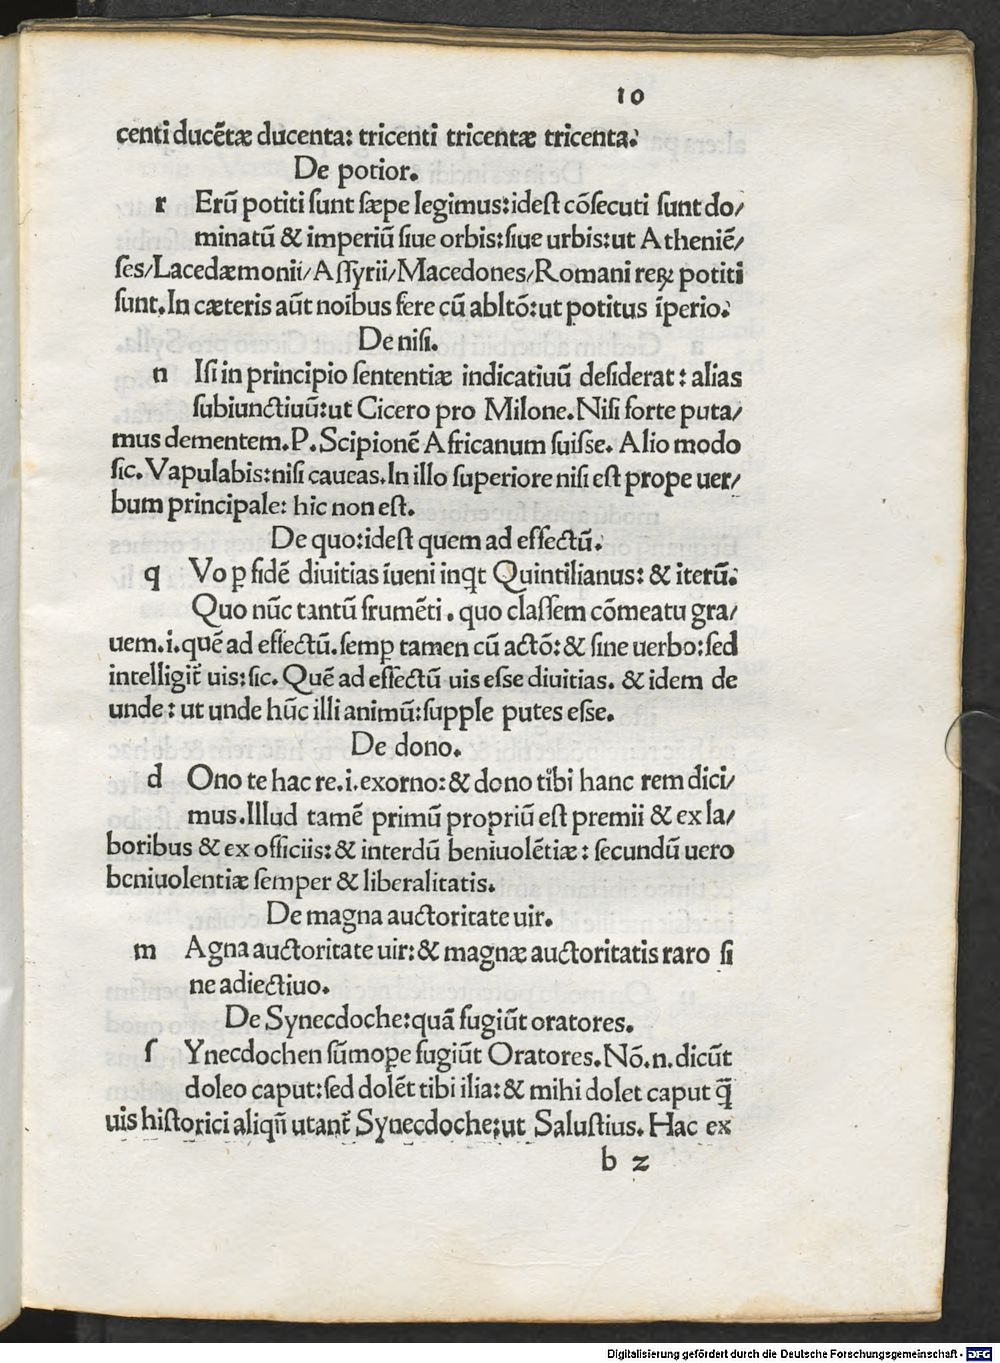 10
centi ducētæ ducenta: tricenti tricentæ tricenta.
De potior.
r Erū potiti ſunt ſæpe legimus: ideſt cōſecuti ſunt do/
minatū & imperiū ſiue orbis: ſiue urbis: ut Atheniē/
ſes/Lacedæmonii/Aſſyrii/Macedones/Romani reꝝ potiti
ſunt. In cæteris aūt noibus fere cū abltō: ut potitus īperio.
De niſi.
n Iſi in principio ſententiæ indicatiuū deſiderat: alias
ſubiunctiuū: ut Cicero pro Milone. Niſi forte puta/
mus dementem. P. Scipionē Africanum fuiſſe. Alio modo
ſic. Vapulabis: niſi caueas. In illo ſuperiore niſi eſt prope uer/
bum principale: hic non eſt.
De quo: ideſt quem ad effectū.
q Vo ꝑ fidē diuitias īueni inqt Quintilianus: & iterū.
Quo nūc tantū frumēti. quo claſſem cōmeatu gra/
uem. i. quē ad effectū. ſemꝑ tamen cū actō: & ſine uerbo: ſed
intelligit̄ uis: ſic. Quē ad effectū uis eſſe diuitias. & idem de
unde: ut unde hūc illi animū: ſupple putes eſſe.
De dono.
d Ono te hac re. i. exorno: & dono tibi hanc rem dici/
mus. Illud tamē primū propriū eſt premii & ex la/
boribus & ex officiis: & interdū beniuolētiæ: ſecundū uero
beniuolentiæ ſemper & liberalitatis.
De magna auctoritate uir.
m Agna auctoritate uir: & magnæ auctoritatis raro ſi
ne adiectiuo.
De Synecdoche: quā fugiūt oratores.
ſ Ynecdochen ſūmoꝑe fugiūt Oratores. Nō. n. dicūt
doleo caput: ſed dolēt tibi ilia: & mihi dolet caput q̄
uis hiſtorici aliqn̄ utant̄ Synecdoche: ut Saluſtius. Hac ex
b 2
Digitalisierung gefördert durch die Deutsche Forschungsgemeinschaft - DFG